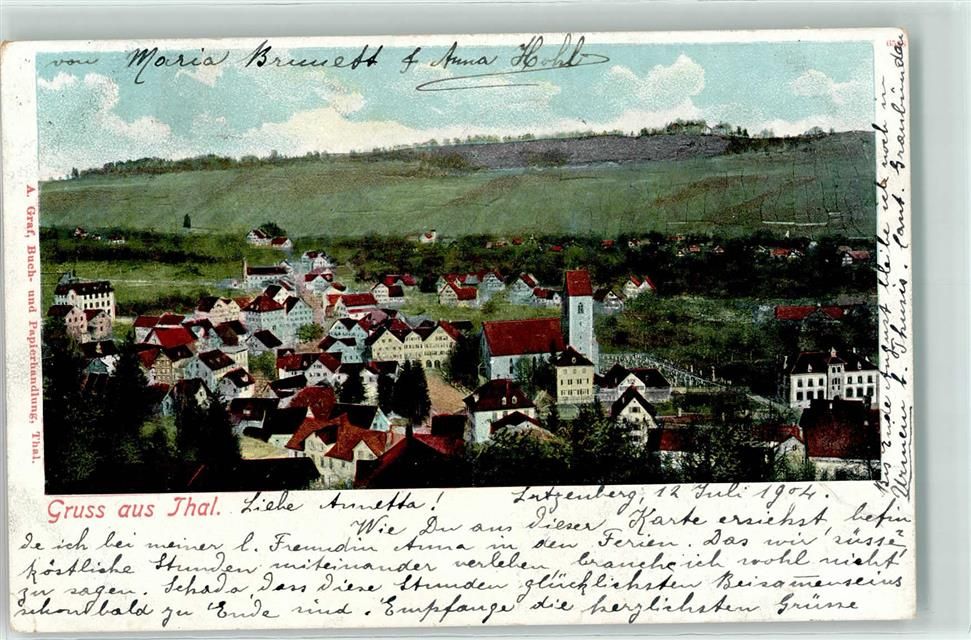 von Maria Brunett & Anna Hohl
A. Graf, Buch- und Papierhandlung, Thal.
Gruss aus Thal.
Lutzenberg, 12 Juli 1904.
Liebe Annetta!
Wie Du aus dieser Karte ersiehst, befin
de ich bei meiner l. Freundin Anna in den Ferien. Das wir süsse,
köstliche Stunden miteinander verleben brauche ich wohl nicht
zu sagen. Schade, dass diese Stunden glücklichsten Beisammenseins
schon bald zu Ende sind. Empfange die herzlichsten Grüsse
Bis Ende August bleibe ich noch in
b. Thusis. Cant. Graubünden